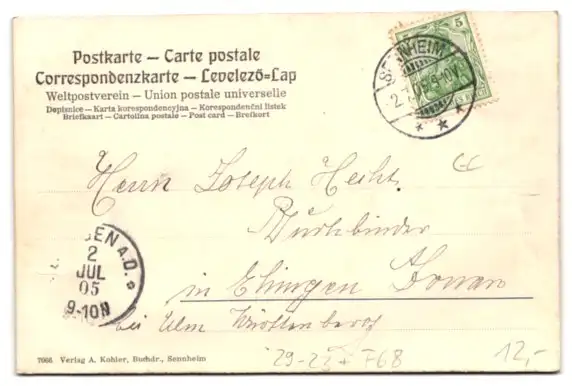 Postkarte – Carte postale
Correspondenzkarte – Levelező-Lap
Weltpostverein – Union postale universelle
Dopisnice – Karta korespondencyjna – Korespondenční listek
Briefkaart – Cartolina postale – Post card – Brefkort
5
SENNHEIM
2. 7. 05 9-10N
Herrn Joseph Hecht
Buchbinder
in Ehingen Donau
bei Ulm Württemberg
EN A.D.
2
JUL
05
9-10N
7666 Verlag A. Kohler, Buchdr., Sennheim
12,-